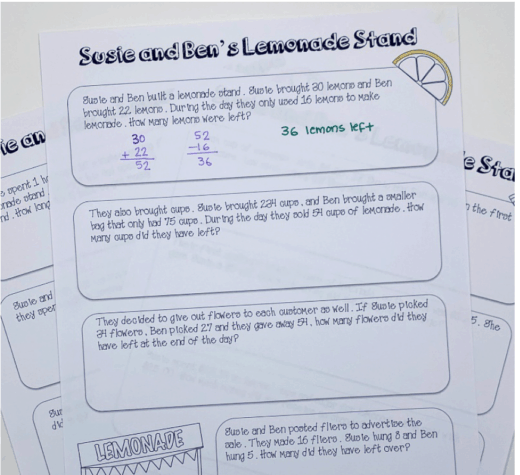 Susie and Ben's Lemonade Stand
Susie and Ben built a lemonade stand. Susie brought 30 lemons and Ben
brought 22 lemons. During the day they only used 16 lemons to make
lemonade. How many lemons were left?
30
+ 22
52
52
-16
36
36 lemons left
They also brought cups. Susie brought 234 cups, and Ben brought a smaller
bag that only had 75 cups. During the day they sold 54 cups of lemonade. How
many cups did they have left?
They decided to give out flowers to each customer as well. If Susie picked
34 flowers, Ben picked 27 and they gave away 54, how many flowers did they
have left at the end of the day?
LEMONADE
Susie and Ben posted fliers to advertise the
sale. They made 16 fliers. Susie hung 8 and Ben
hung 5. How many did they have left over?
ie an
s spent 1
nade stand
nd. How long
Susie and
they spen
e Sta
n the first
5. She